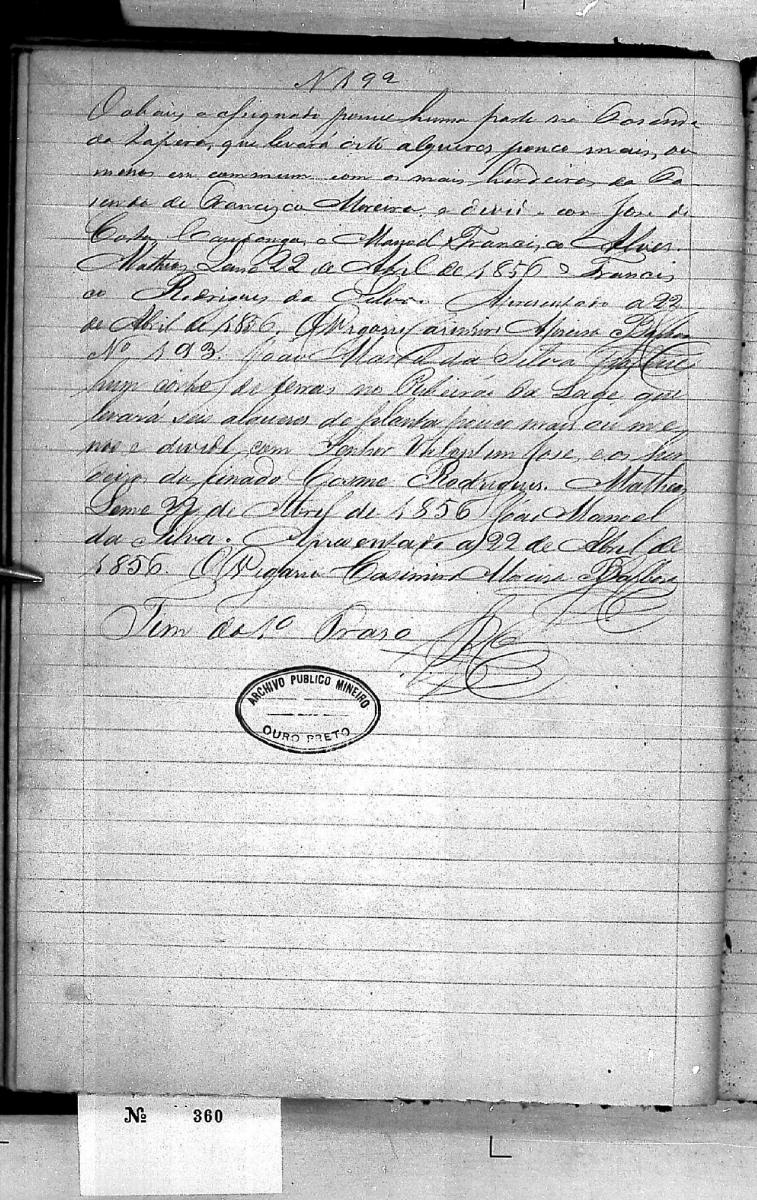 N 192
O abaixo assignado possue huma parte na Fasenda
da Tapera, que levará oito alqueires pouco mais, ou
menos em commum com os mais herdeiros da Fa
senda de Francisco Moreira, e devide com José da
Costa e Manoel Francisco Alves.
Matheus Leme 22 de Abril de 1856 Francis
co Rodrigues da Silva. Apresentado a 22
de Abril de 1856. O Vigario Casimiro Moreira Barbosa
Nº 193. João Manoel da Silva
hum de terras no Ribeirão da Lage que
levará seis alqueires de planta pouco mais ou me
nos e devide com Senhor José, e os her
deiros do finado Cosme Rodrigues. Matheus
Leme 22 de Abril de 1856 João Manoel
da Silva. Apresentado a 22 de Abril de
1856. O Vigario Casimiro Moreira Barbosa
Fim do 1º Praso
ARCHIVO PUBLICO MINEIRO
OURO PRETO
Nº 360